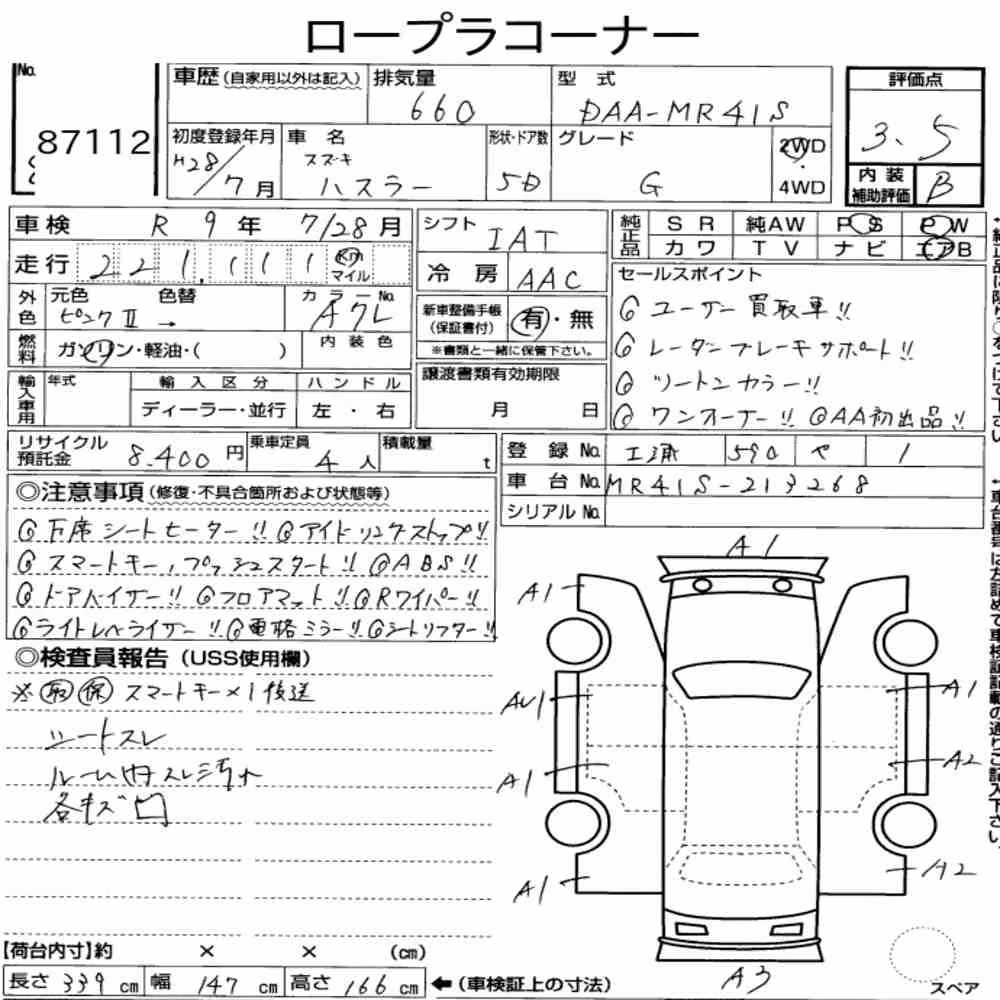 ロープラコーナー
No. 87112
車歴(自家用以外は記入)
排気量 660
型式 DAA-MR41S
評価点 3.5
内装補助評価 B
初度登録年月 H28/7月
車名 スズキ ハスラー
形状・ドア数 5D
グレード G
2WD・4WD
車検 R 9年 7/28月
走行 221,111 Km マイル
シフト IAT
冷房 AAC
純正品 SR 純AW PS PW
カワ TV ナビ エアB
外色 元色 ピンクⅡ 色替 → カラーNo. A7L
燃料 ガソリン・軽油・( )
内装色
新車整備手帳(保証書付) 有・無
※書類と一緒に保管下さい。
セールスポイント
◎ユーザー買取車!!
◎レーダーブレーキサポート!!
◎ツートンカラー!!
◎ワンオーナー!! ◎AA初出品!!
輸入車用 年式 輸入区分 ハンドル
ディーラー・並行 左・右
譲渡書類有効期限
月 日
リサイクル預託金 8,400円
乗車定員 4人
積載量 t
登録No. 590 1
車台No. MR41S-213268
シリアルNo.
◎注意事項(修復・不具合箇所および状態等)
シートヒーター!! ◎アイドリングストップ!!
◎スマートキー,プッシュスタート!! ◎ABS!!
◎ドアバイザー!! ◎フロアマット!! ◎Rワイパー!!
◎ライトレベライザー!! ◎電格ミラー!! ◎シートリフター!!
◎検査員報告(USS使用欄)
※取 保 スマートキー×1後送
シートスレ
ルーム内スレ汚れ
各キズ凹
A1
A1
AU1
A1
A1
A1
A2
A2
A3
スペア
【荷台内寸】約 × × (cm)
長さ 339 cm 幅 147 cm 高さ 166 cm ←(車検証上の寸法)
↑純正品に限り○をつけて下さい
↑車台番号は左詰めで車検証記載の通りご記入下さい。